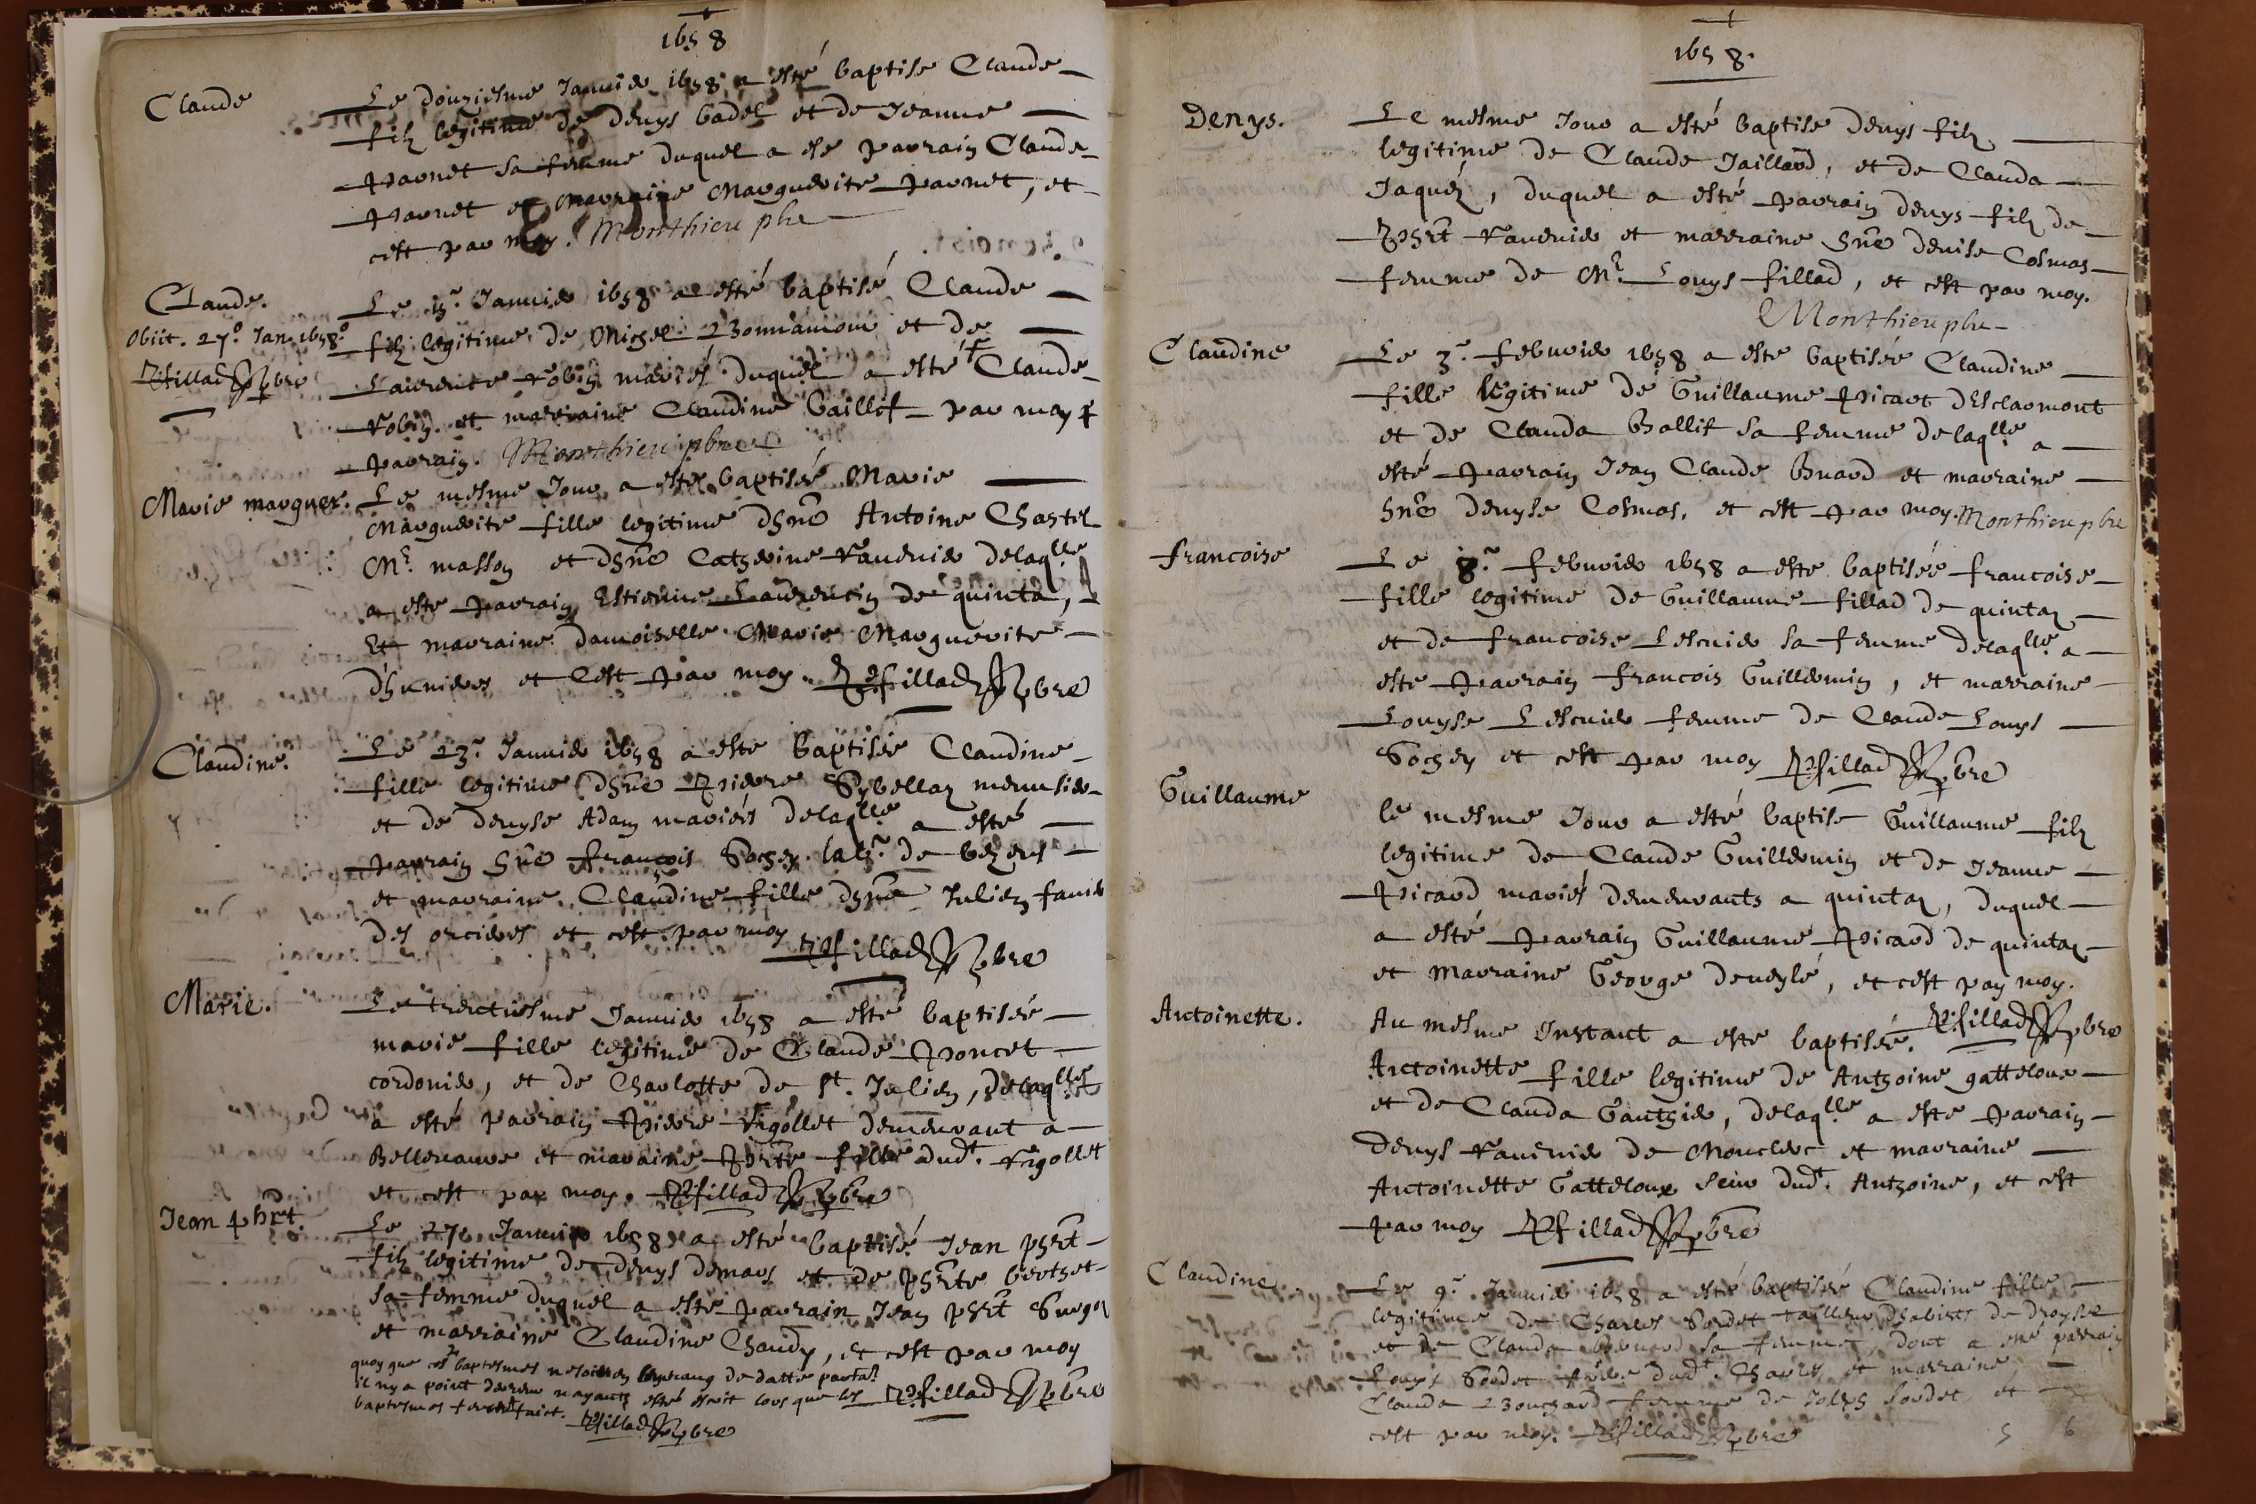 1658
Claude
Le douziesme Januier 1658 a esté baptise Claude
filz legitime de denys badel et de Jeanne
parnet sa femme duquel a esté parrain Claude
parnet et marraine Marguerite parnet, et
cest par moy. Monthieu pbre
Claude.
Obiit. 27.º Jan. 1658º
R fillad pbre
Le Januier 1658 a esté baptisé Claude
filz legitime de Michel Bonnamour et de
Laurence robin mariés duquel a esté Claude
robin et marraine Claudine baillet par moy
parrain. Monthieu pbre
Marie marguer.
Le mesme Jour a esté baptisée Marie
Marguerite fille legitime dhñe Antoine Chastel
Mr. masson et dhñe Catherine vauenier delaqlle
a este parrain Estienne Laurencin de quinta,
Et marraine damoiselle Marie Marguerite
et cest par moy. R fillad pbre
Claudine.
Le 23.e Januier 1658 a esté baptisée Claudine
fille legitime dhñe pierre Sybellaz menusier
et de denyse Adam mariéz delaqlle a esté
parrain hñe françois Sochay de
et marraine. Claudine fille dhñe Julien fauier
des orcieres et cest par moy
R fillad pbre
Marie.
Le trentiesme Januier 1658 a esté baptisée
marie fille legitime de Claude poncet
cordonier, et de Charlotte de St. Julien, delaqlle
a esté parrain pierre vigollet demeurant a
Bellenaue et maraine fille dudt. vigollet
et cest par moy. R fillad pbre
Jean phrt.
Le 27e. Januier 1658 a esté baptisé Jean phrt
filz legitime de denys demars et de phrte berthet
sa femme duquel a esté parrain Jean phrt
et marraine Claudine Chaudy, et cest par moy
R fillad pbre
quoy que ces baptesmes ne soient en leur rang de datte
il ny a point derreur nayants esté escrit lors que les
baptesmes furent faict. R fillad pbre
1658.
Denys.
Le mesme Jour a esté baptise denys filz
legitime de Claude Jaillard, et de Clauda
Jaquéz, duquel a esté parrain denys filz de
phrt vauenier et marraine hñe denise Cosmas
femme de Mr. Louys fillad, et cest par moy.
Monthieu pbre
Claudine
Le 3.e feburier 1658 a este baptisée Claudine
fille legitime de Guillaume picart desclarmont
et de Clauda Ballif sa femme delaqlle a
esté parrain Jean Claude Buard et marraine
hñe denyse Cosmas, et cest par moy. Monthieu pbre
francoise
Le 8.e feburier 1658 a este baptisée francoise
fille legitime de Guillaume fillad de quintaz
et de francoise Lescuier sa femme delaqlle a
este parrain francois Guillermin, et marraine
Louyse Lescuier femme de Claude Louys
Sochay et cest par moy R fillad pbre
Guillaume
le mesme Jour a esté baptise Guillaume filz
legitime de Claude Guillermin et de Jeanne
picard mariés demeurants a quintaz, duquel
a esté parrain Guillaume picard de quintaz
et marraine George deueylé, et cest par moy.
R fillad pbre
Antoinette.
Au mesme Instant a este baptisée.
Antoinette fille legitime de Anthoine gatteloup
et de Clauda Gauthier, delaqlle a este parrain
denys vauenier de Mouclerc et marraine
Antoinette Gatteloup seur dudt. Anthoine, et cest
par moy R fillad pbre
Claudine
Le 9.e Januier 1658 a esté baptisée Claudine fille
legitime de Charles Sordet tailleur dhabits de
et de Clauda sa femme, dont a esté parrain
Louys Sordet frère dudt. Charles et marraine
Clauda Bouchard femme de Sordet et
cest par moy. R fillad pbre